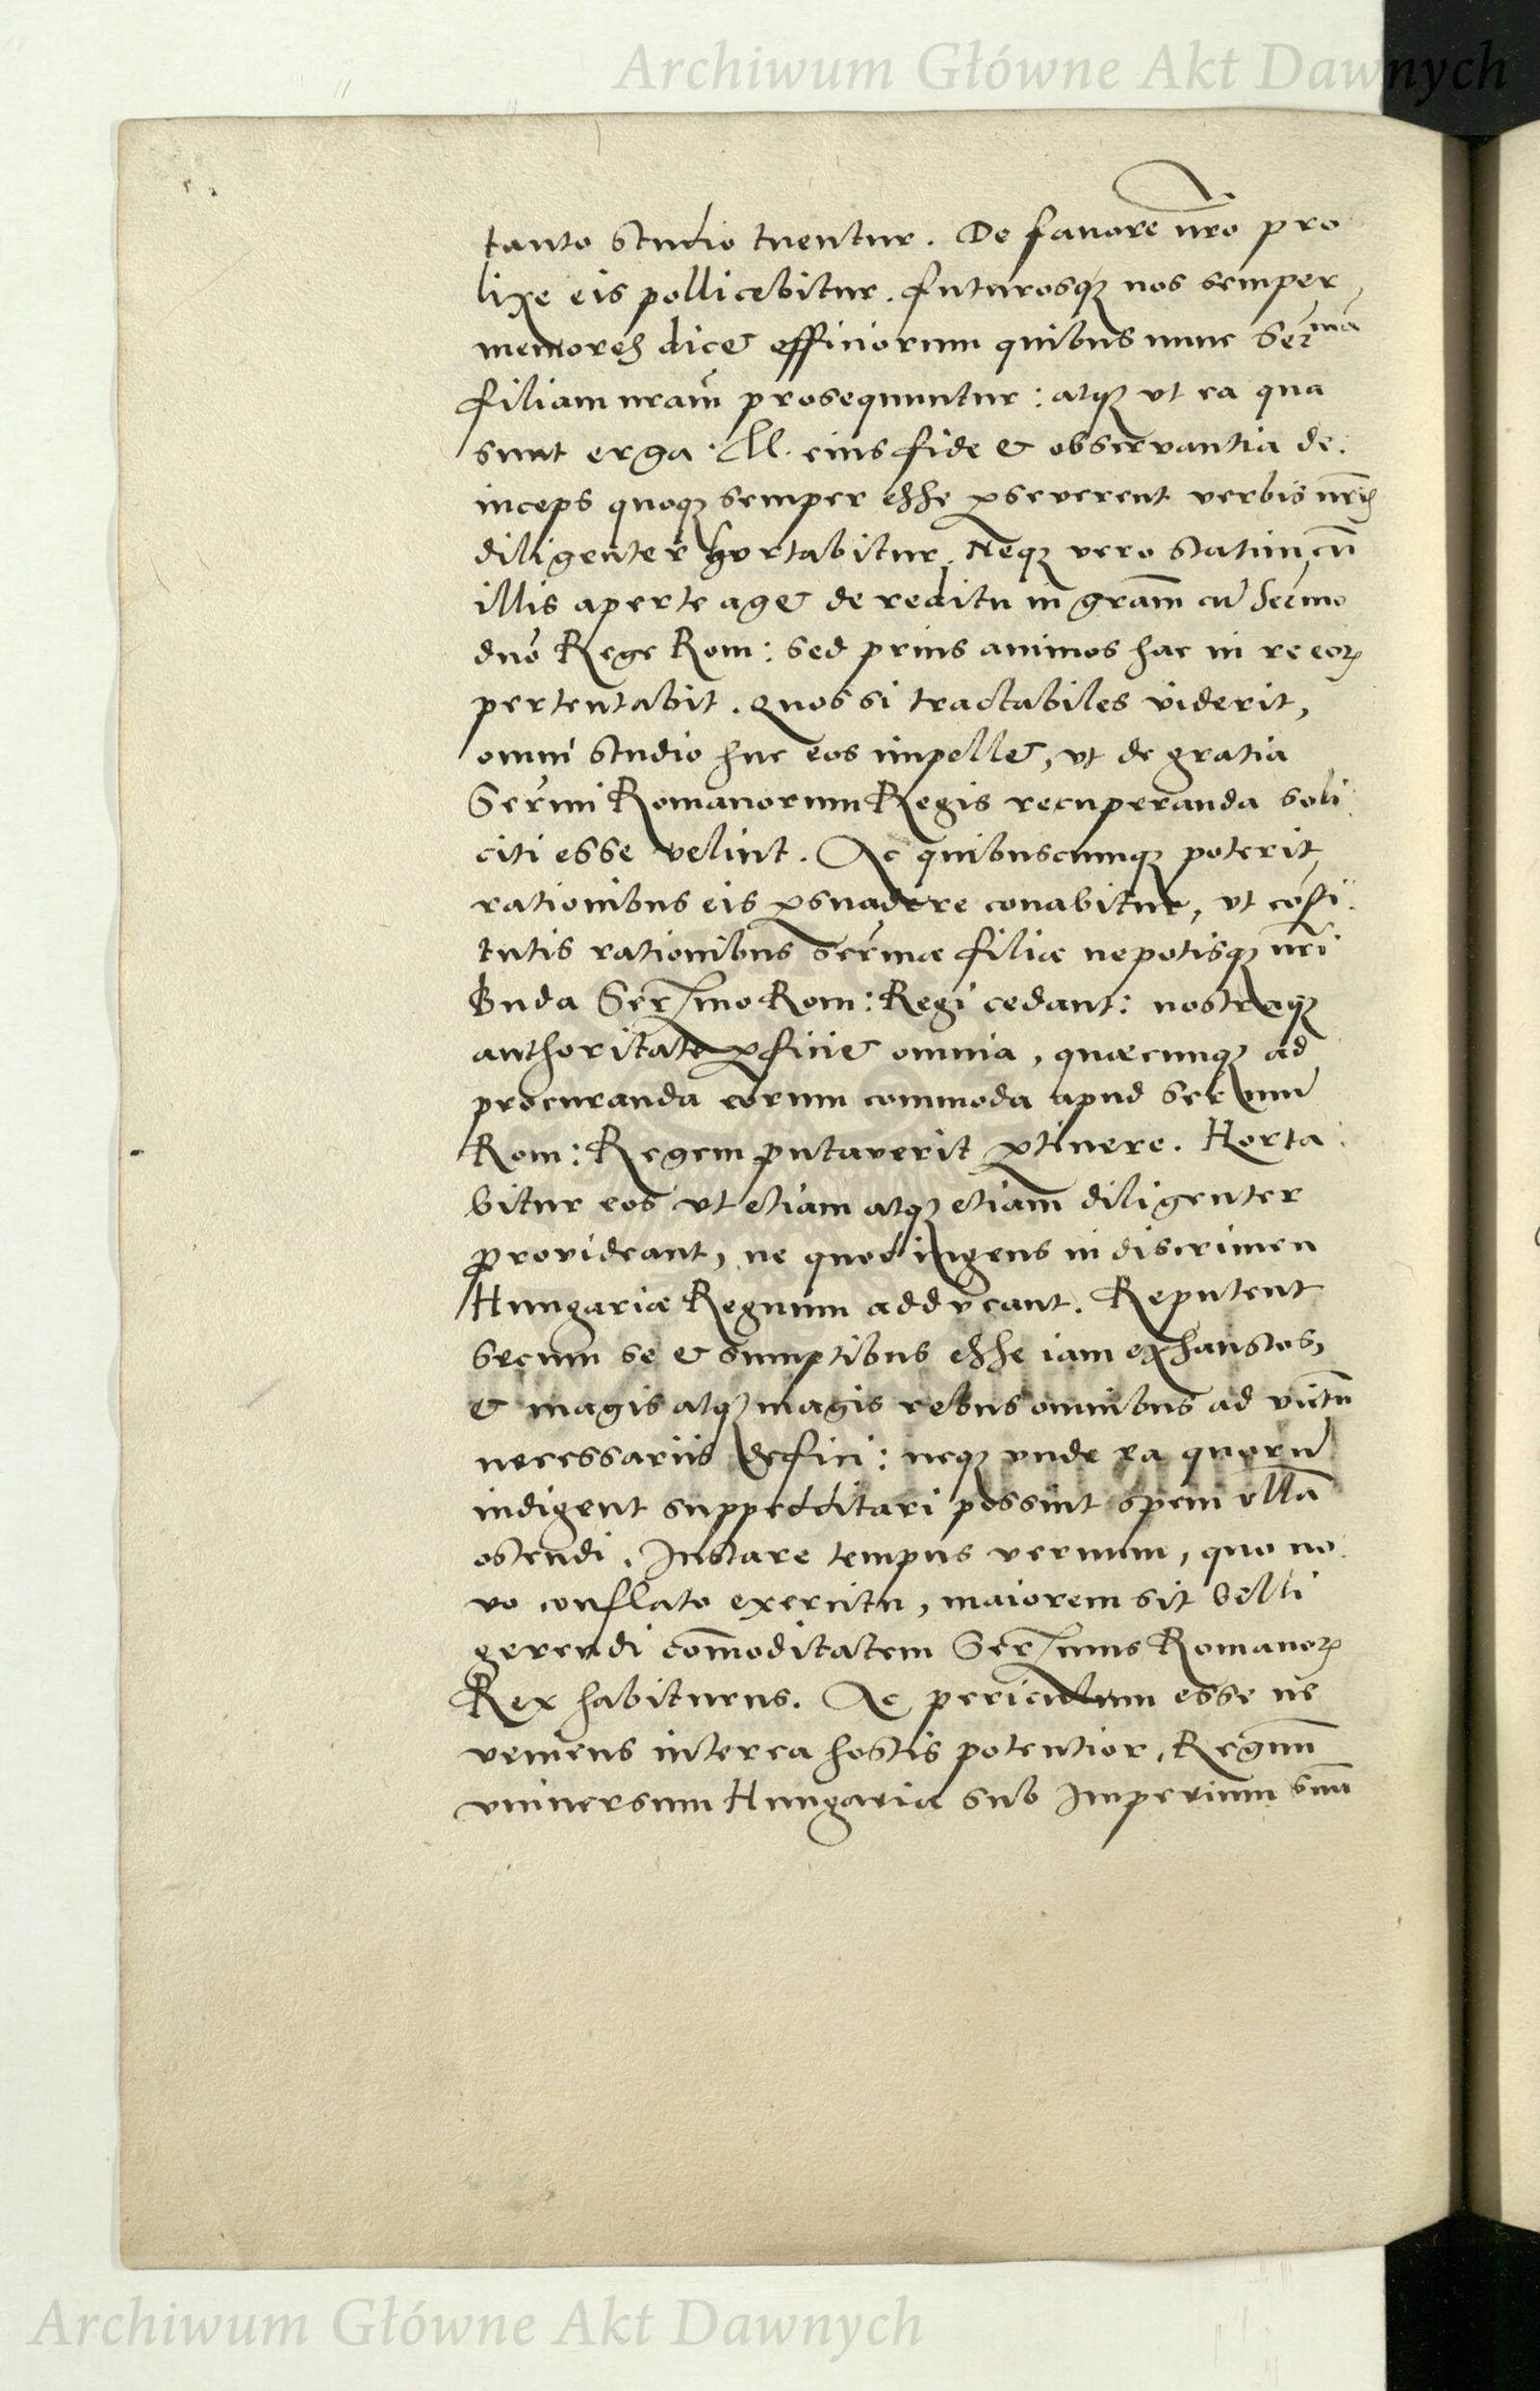 Archiwum Główne Akt Dawnych
tanto studio tuentur. De favore nr̃o pro
lixe eis pollicebitur. futurosq̃ nos semper
memores dicet officiorum quibus nunc Serᵐᵃ
filiam nram̃ prosequuntur: atq̃ ut ea qua
sunt erga M. eius fide & observantia de:
inceps quoq̃ semper esse ꝑseverent verbis nr̃is
diligenter hortabitur. Neq̃ vero statim cũ
illis aperte aget de reditu in gram̃ cũ Serm̃o
dno᷉ Rege Rom: sed prius animos hac in re eoꝝ
pertentabit. Quos si tractabiles viderit,
omni studio huc eos impellet, ut de gratia
Serm̃i Romanorum Regis recuperanda soli:
citi esse velint. Ac quibuscunq̃ poterit
rationibus eis ꝑsuadere conabitur, ut cõsti:
tutis rationibus Serm̃æ filiæ nepotisq̃ nr̃i
Buda Serᵐᵒ Rom: Regi cedant: nostraq̃
authoritate ꝑficiet omnia, quæcunq̃ ad
procuranda eorum commoda apud Serm̃ũ
Rom: Regem putaverit ꝑtinere. Horta:
bitur eos ut etiam atq̃ etiam diligenter
provideant, ne quod ingens in discrimen
Hungariæ Regnum adducant. Reputent
secum se & sumptibus esse iam exhaustos,
& magis atq̃ magis rebus omnibus ad victũ
necessariis defici: neq̃ unde ea quorũ
indigent suppeditari possint spem ullã
ostendi. Instare tempus vernum, quo no:
vo conflato exercitu, maiorem sit belli
gerendi com̃oditatem Serᵐᵘˢ Romanoꝝ
Rex habiturus. Ac periculum esse ne
veniens interea hostis potentior, Regnũ
universum Hungariæ sub Imperium suũ
Archiwum Główne Akt Dawnych